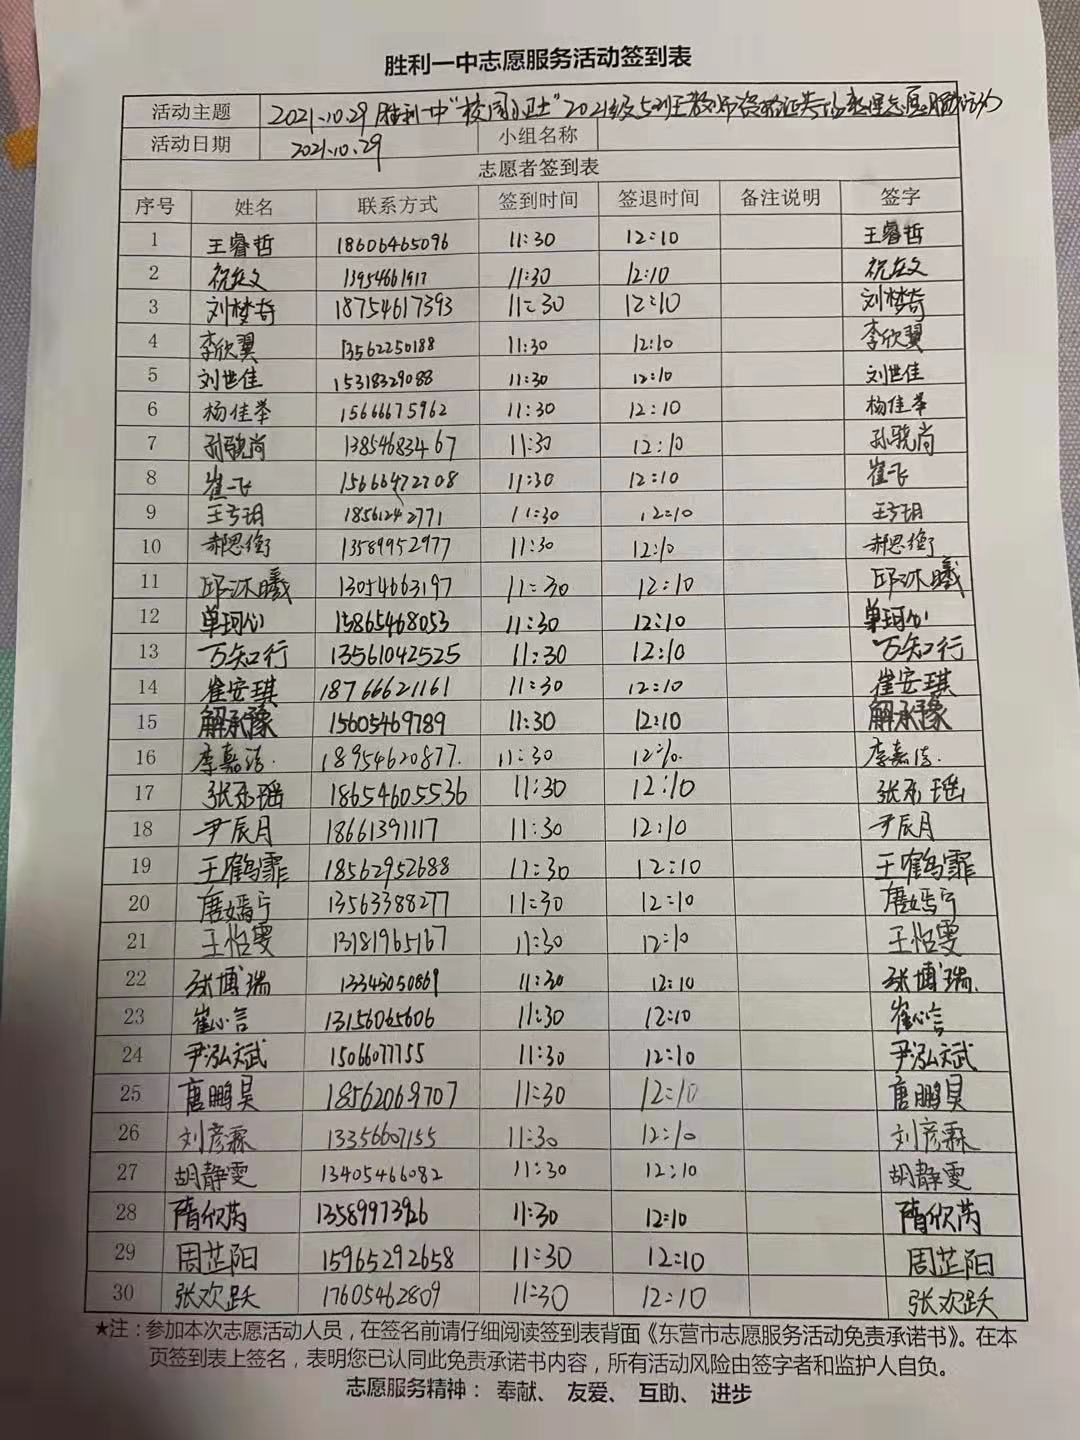 胜利一中志愿服务活动签到表
活动主题 2021.10.29胜利一中"校园卫士"2021级5班王教师资格证考 志愿服务活动
活动日期 2021.10.29 小组名称
志愿者签到表
序号 姓名 联系方式 签到时间 签退时间 备注说明 签字
1 王睿哲 18606465096 11:30 12:10 王睿哲
2 祝 文 13954661917 11:30 12:10 祝 文
3 刘梦奇 18754617393 11:30 12:10 刘梦奇
4 李欣翼 13562250188 11:30 12:10 李欣翼
5 刘世佳 15318329088 11:30 12:10 刘世佳
6 杨佳举 15666675962 11:30 12:10 杨佳举
7 孙骁尚 13854683467 11:30 12:10 孙骁尚
8 崔飞 15666472708 11:30 12:10 崔飞
9 王亏玥 18561242771 11:30 12:10 王亏玥
10 郝思衡 13589952977 11:30 12:10 郝思衡
11 邱沐曦 13054663197 11:30 12:10 邱沐曦
12 单珂心 15865468053 11:30 12:10 单珂心
13 万知行 13561042525 11:30 12:10 万知行
14 崔安琪 18766621161 11:30 12:10 崔安琪
15 解承豫 15605469789 11:30 12:10 解承豫
16 李嘉洁 18954620877. 11:30 12:10. 李嘉洁.
17 张 瑶 18654605536 11:30 12:10 张 瑶
18 尹辰月 18661391117 11:30 12:10 尹辰月
19 王鹤霏 18562952688 11:30 12:10 王鹤霏
20 唐嫣宁 13563388277 11:30 12:10 唐嫣宁
21 王怡雯 13181965167 11:30 12:10 王怡雯
22 张博瑞 13345050869 11:30 12:10 张博瑞.
23 崔心言 13156065606 11:30 12:10 崔心言
24 尹泓斌 15066077755 11:30 12:10 尹泓斌
25 唐鹏昊 18562069707 11:30 12:10 唐鹏昊
26 刘彦霖 13356607155 11:30 12:10 刘彦霖
27 胡静雯 13405466082 11:30 12:10 胡静雯
28 隋欣芮 13589973926 11:30 12:10 隋欣芮
29 周芷阳 15965292658 11:30 12:10 周芷阳
30 张欢跃 17605462809 11:30 12:10 张欢跃
★注：参加本次志愿活动人员，在签名前请仔细阅读签到表背面《东营市志愿服务活动免责承诺书》。在本
页签到表上签名，表明您已认同此免责承诺书内容，所有活动风险由签字者和监护人自负。
志愿服务精神： 奉献、 友爱、 互助、 进步